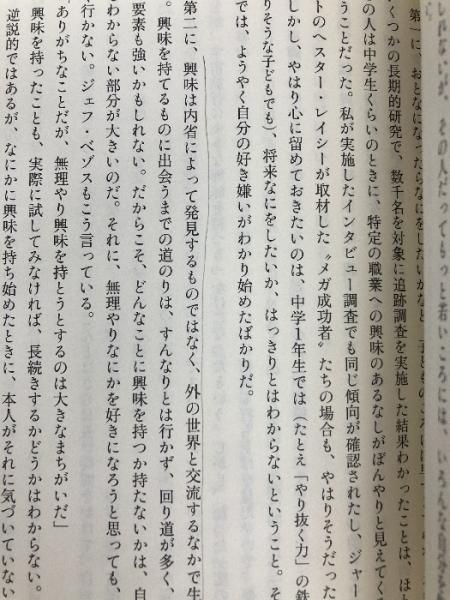 第一に、おとなになったらなにをしたいかなど、子どものころには
くつかの長期的研究で、数千名を対象に追跡調査を実施した結果わかったことは、ほと
の人は中学生くらいのときに、特定の職業への興味のあるなしがぼんやりと見えてく
うことだった。私が実施したインタビュー調査でも同じ傾向が確認されたし、ジャー
トのヘスター・レイシーが取材した〝メガ成功者〟たちの場合も、やはりそうだった
しかし、やはり心に留めておきたいのは、中学1年生では(たとえ「やり抜く力」の鉄
りそうな子どもでも)、将来なにをしたいか、はっきりとはわからないということ。そ
では、ようやく自分の好き嫌いがわかり始めたばかりだ。
第二に、興味は内省によって発見するものではなく、外の世界と交流するなかで生
。興味を持てるものに出会うまでの道のりは、すんなりとは行かず、回り道が多く、
要素も強いかもしれない。だからこそ、どんなことに興味を持つか持たないかは、自
わからない部分が大きいのだ。それに、無理やりなにかを好きになろうと思っても、
行かない。ジェフ・ベゾスもこう言っている。
ありがちなことだが、無理やり興味を持とうとするのは大きなまちがいだ」
興味を持ったことも、実際に試してみなければ、長続きするかどうかはわからない。
逆説的ではあるが、なにかに興味を持ち始めたときに、本人がそれに気づいていない